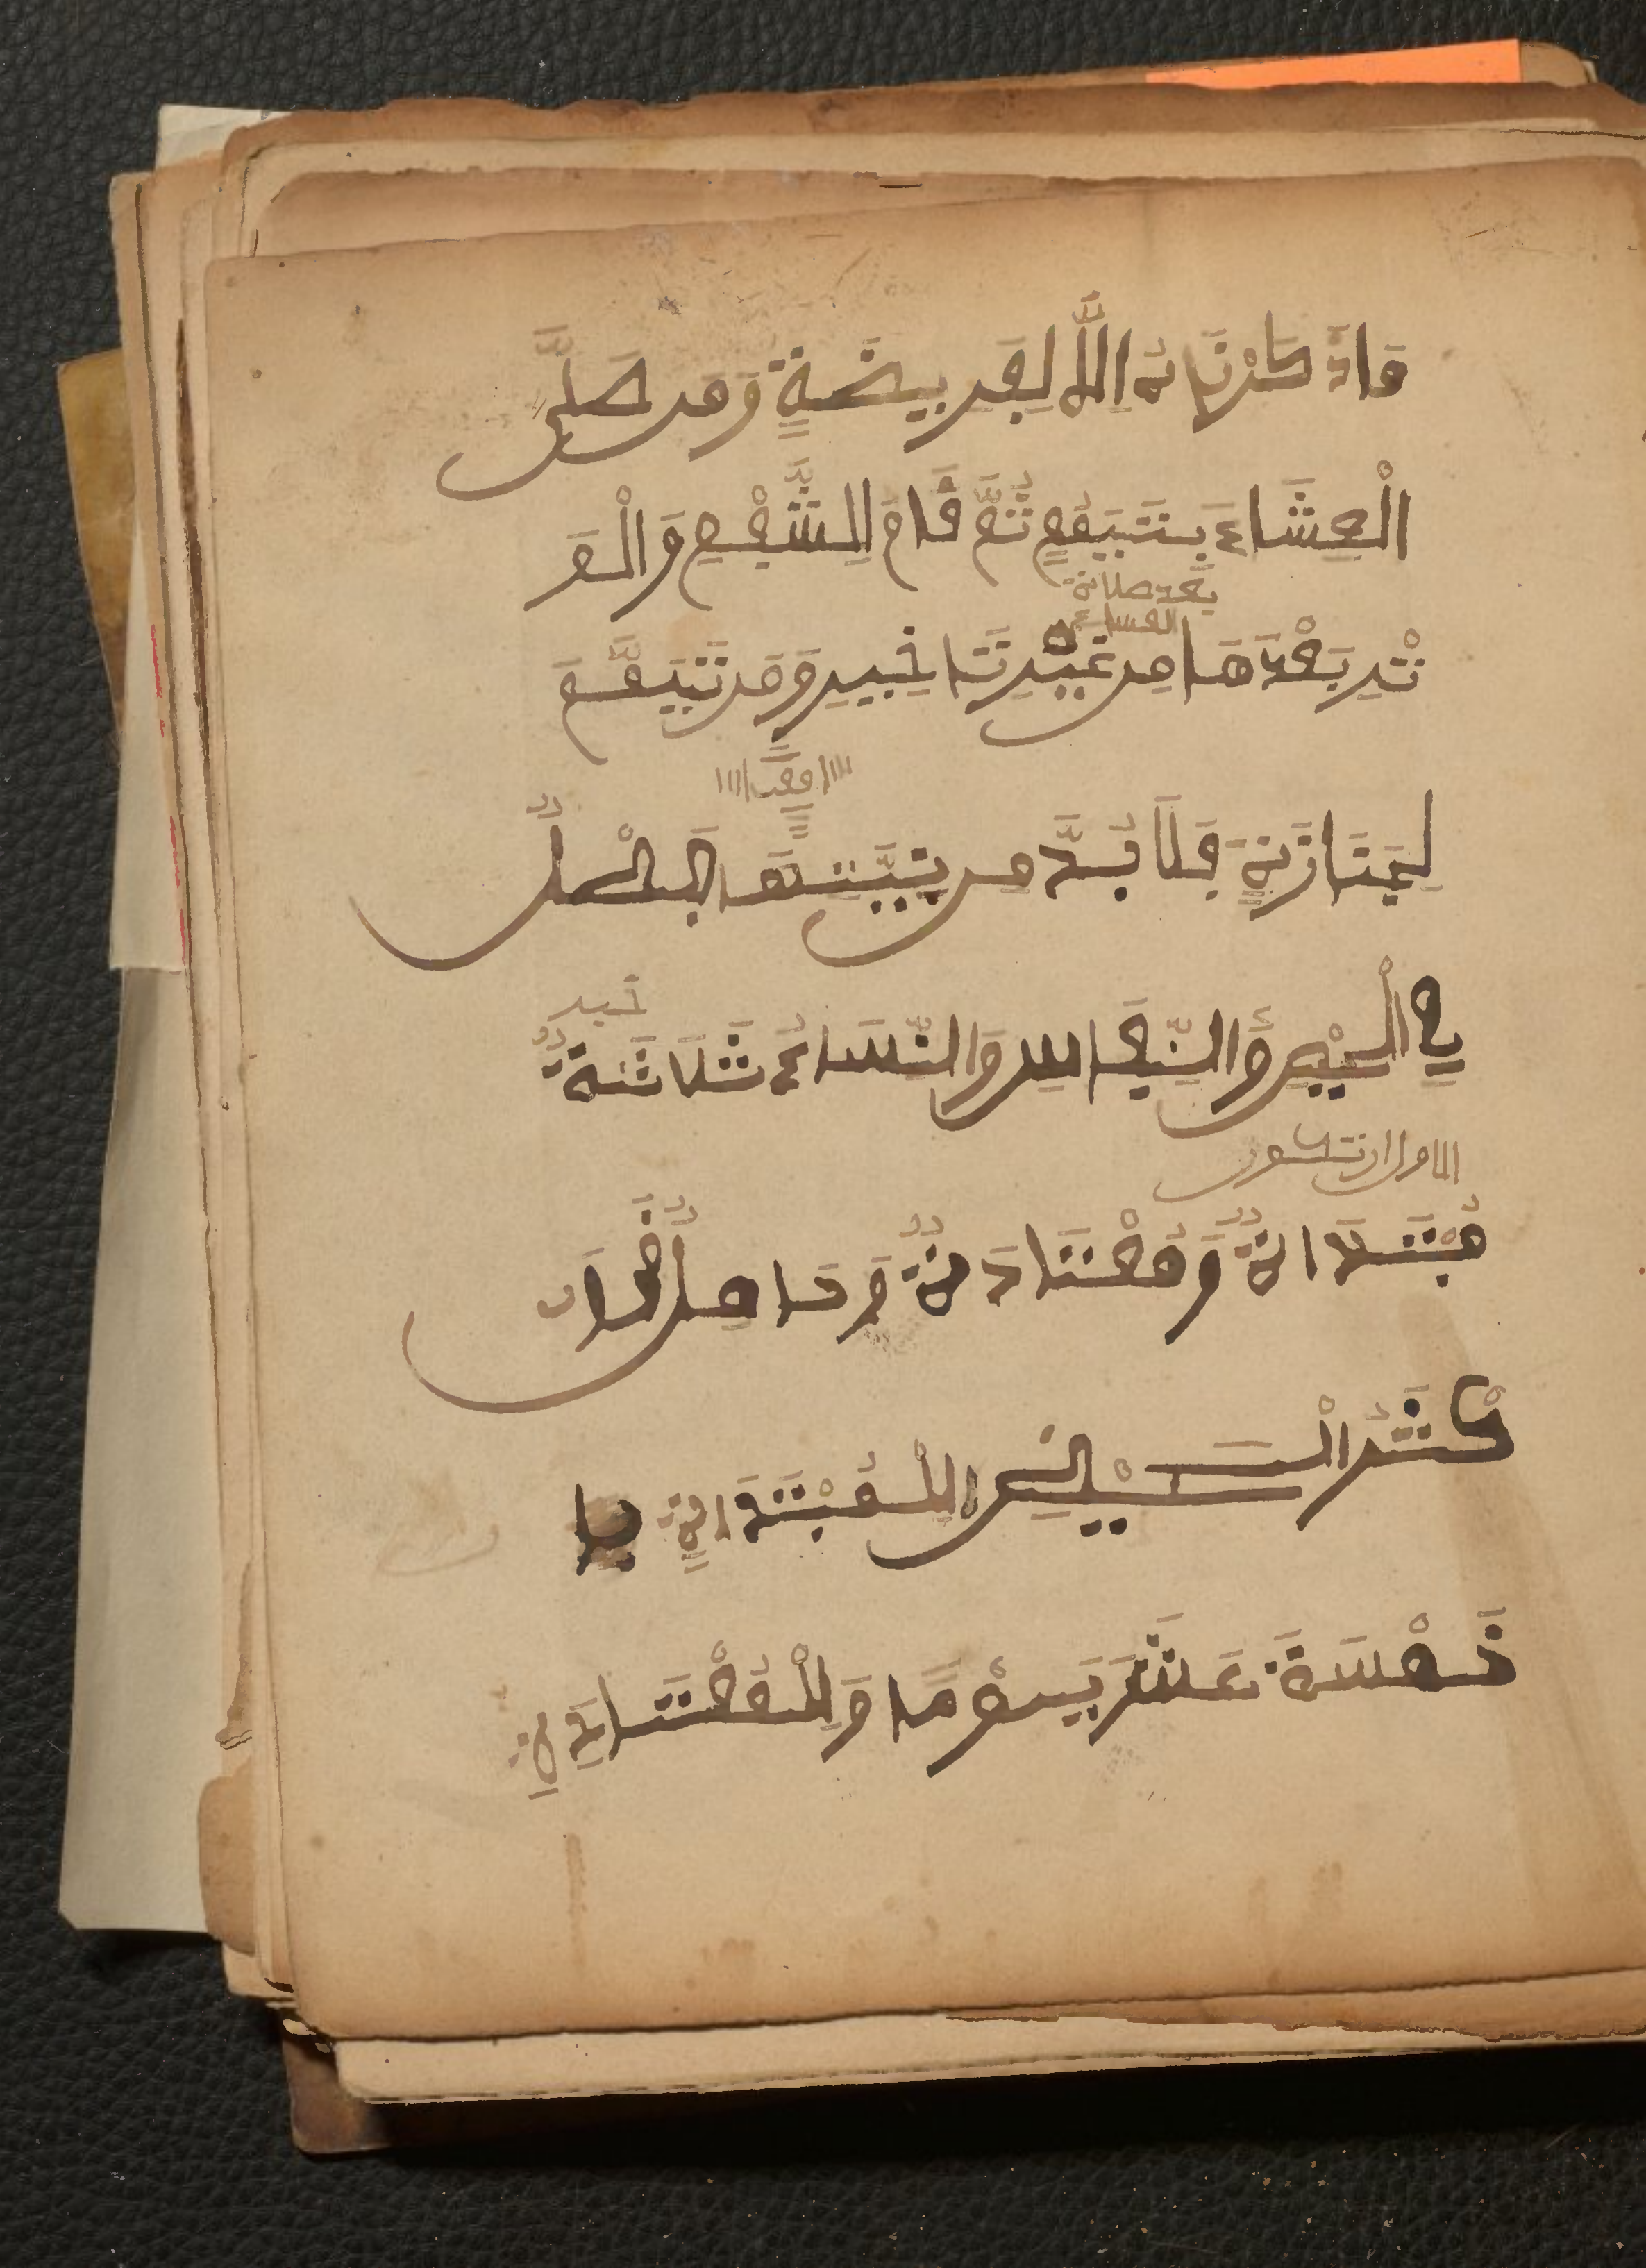 ما ذكرناه إلا لفريضة ومن صلى
العشاء بتيمم ثم قام للشفع والو
بعد صلاة
العشاء
تر بعدها من غير تاخير ومن تيمم
لجنازنة فلا بد من نيتها فصل
خبر
في الحيض والنفاس والنساء ثلاثة
مبتداة ومعتادة وحامل أ
كثر الحيض للمبتداة
خمسة عشر يوما وللمعتادة